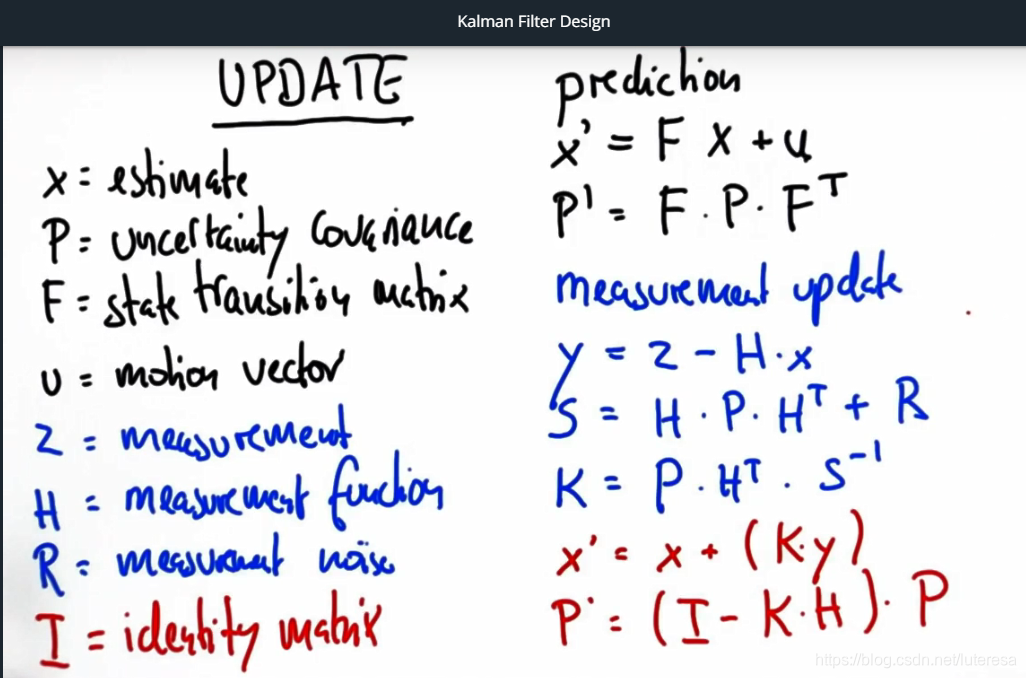 Kalman Filter Design
UPDATE
x = estimate
P = uncertainty covariance
F = state transition matrix
u = motion vector
z = measurement
H = measurement function
R = measurement noise
I = identity matrix
prediction
x' = F x + u
P' = F · P · Fᵀ
measurement update
y = z - H · x
S = H · P · Hᵀ + R
K = P · Hᵀ · S⁻¹
x' = x + (K·y)
P' = (I - K·H) · P
https://blog.csdn.net/luteresa